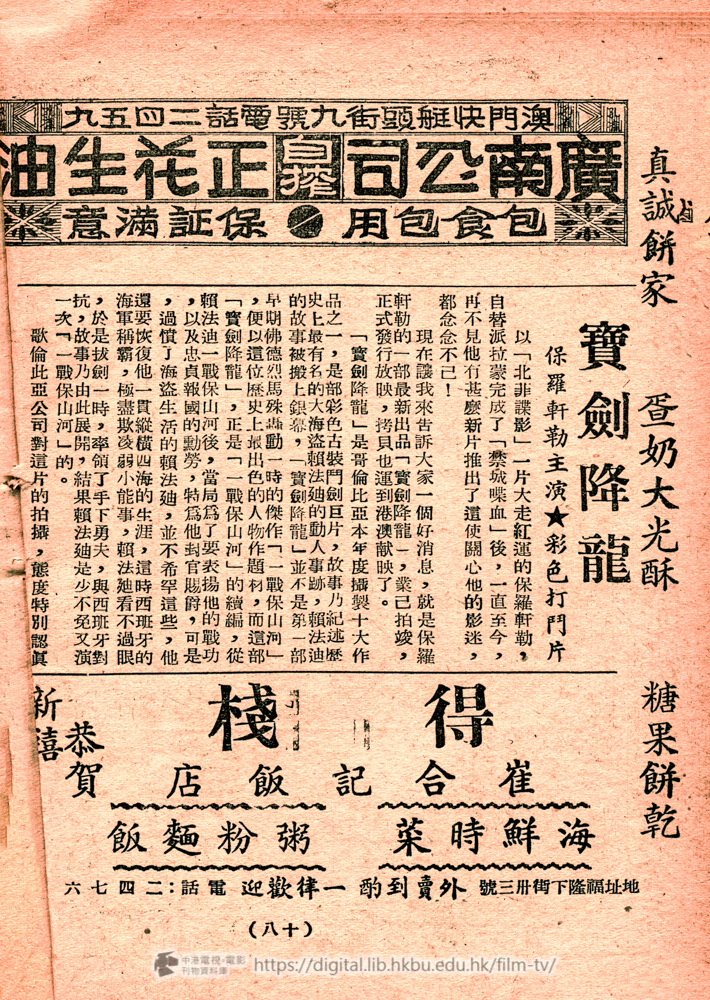 澳門快艇頭街九號電話二四五九
廣南公司自搾正花生油
包食包用 保証滿意
真誠餅家 蛋奶大光酥 糖果餅乾
寶劍降龍
保羅軒勒主演★彩色打鬥片
以「北非諜影」一片大走紅運的保羅軒勒，
自替派拉蒙完成了「禁城喋血」後，一直至今，
再不見他有甚麽新片推出了這使關心他的影迷，
都念念不已！
現在讓我來告訴大家一個好消息，就是保羅
軒勒的一部最新出品「寶劍降龍」，業已拍竣，
正式發行放映，拷貝也運到港澳献映了。
「寶劍降龍」是哥倫比亞本年度攝製十大作
品之一，是部彩色古裝鬥劍巨片，故事乃紀述歷
史上最有名的大海盜賴法廸的動人事跡，賴法廸
的故事被搬上銀幕，「寶劍降龍」並不是第一部
早期佛德烈馬殊轟動一時的傑作「一戰保山河」
，便以這位歷史上最出色的人物作題材，而這部
「寶劍降龍」，正是「一戰保山河」的續編，從
賴法廸一戰保山河後，當局爲了要表揚他的戰功
，以及忠貞報國的勳勞，特爲他封官賜爵，可是
，過慣了海盜生活的賴法廸，並不希罕這些，他
還要恢復他一貫縱橫四海的生涯，這時西班牙的
海軍稱霸，極盡欺凌弱小能事，賴法廸看不過眼
，於是拔劍一時，率領了手下勇夫，與西班牙對
抗，故事乃由此展開，結果賴法廸是少不免又演
一次「一戰保山河」的。
歌倫此亞公司對這片的拍攝，態度特別認眞
得 棧
崔合記飯店
恭賀
新禧
海鮮時菜 粥粉麵飯
地址福隆下街卅三號 外賣到酌一律歡迎 電話：二四七六
（八十）
中港電視・電影
刊物資料庫
https://digital.lib.hkbu.edu.hk/film-tv/